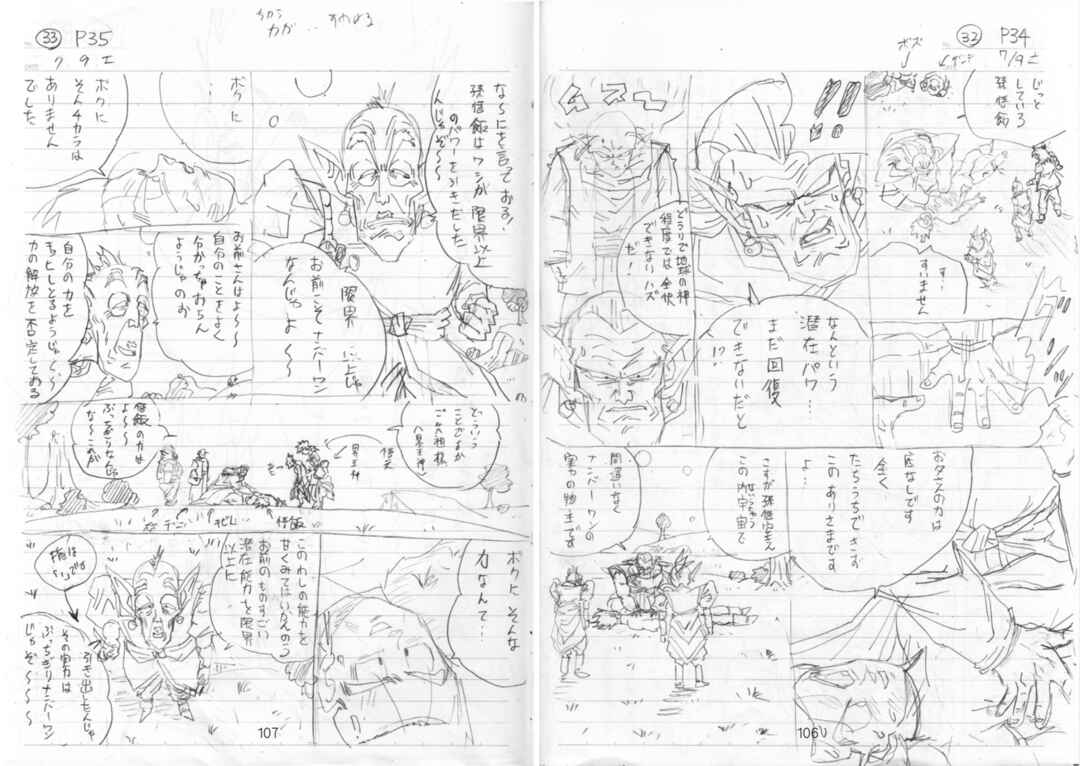 ㉜ P34
7/9 土
ボズ
じっと
している
孫悟飯
す…
すいません
!!
ムスー
どうりで地球の神
程度では全快
できないハズ
だ!
なんという
潜在パワ…
まだ回復
できないだと
!?
お父さんの力は
底なしです
全く
たちうちできず
このありさまです
よ…
これが孫悟空さん
この内宇宙で
ないうちゅう
間違いなく
ナンバーワンの
実力の物主です
106
㉝ P35
7 9 土
ちから
力が‥すわよる
ならにを言ておる!
孫悟飯はワシが限界以上
のパワーをふきだした
んじゃぞ〜〜
限界
以上じゃ
お前こそナンバーワン
なんじゃよ〜〜
ボクに
ボクに
そんな力は
ありません
でした
お前さんはよ〜〜
自分のことをよく
分かっちゃおらん
ようじゃのお
自分の力を
力の解放を否定しておる
どういう
ことですか
ご先祖様
悟天
界王神
悟飯の力は
よ〜〜
悟飯
ボクにそんな
力なんて…
このわしの能力を
甘くみてはいかんのう
お前のものすごい
潜在能力を限界
以上に
引き出したんじゃ
その実力は
ぶっちぎりナンバーワン
じゃぞ〜〜〜
107